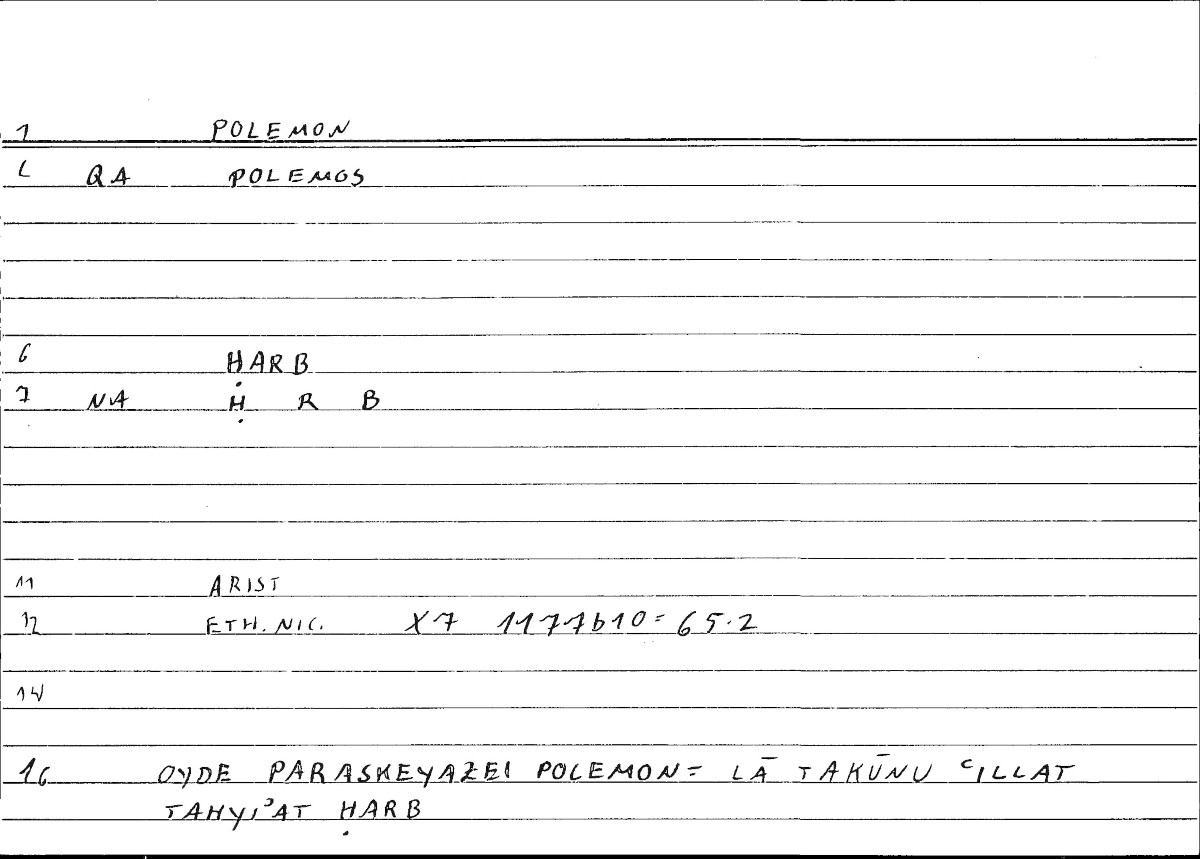 1 POLEMON
2 QA POLEMOS
6 ḤARB
7 NA Ḥ R B
11 ARIST
12 ETH. NIC. X7 1177b10 = 65.2
14
16 OYDE PARASKEYAZEI POLEMON = LĀ TAKŪNU ʿILLAT
TAHYIʾAT ḤARB